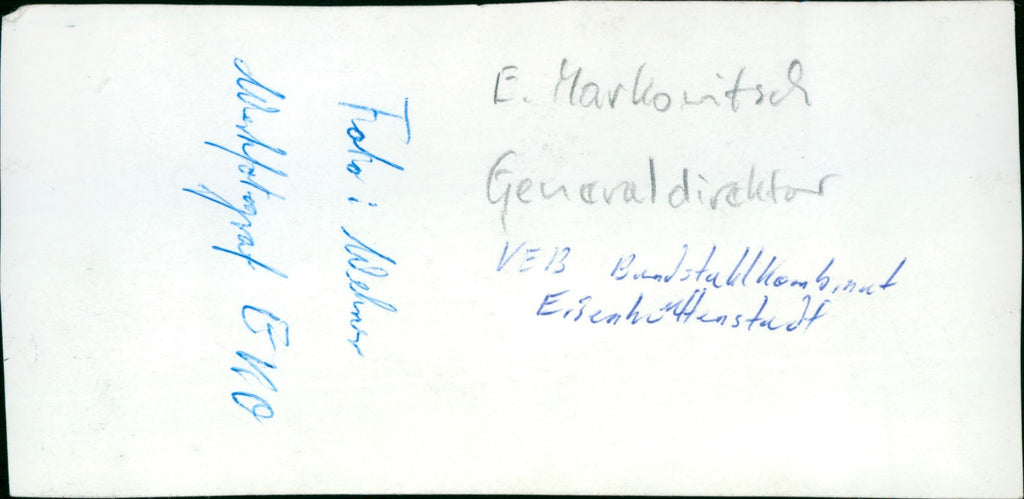 E. Markowitsch
Generaldirektor
VEB Bandstahlkombinat
Eisenhüttenstadt
Foto: Wehner
Werkfotograf EKO